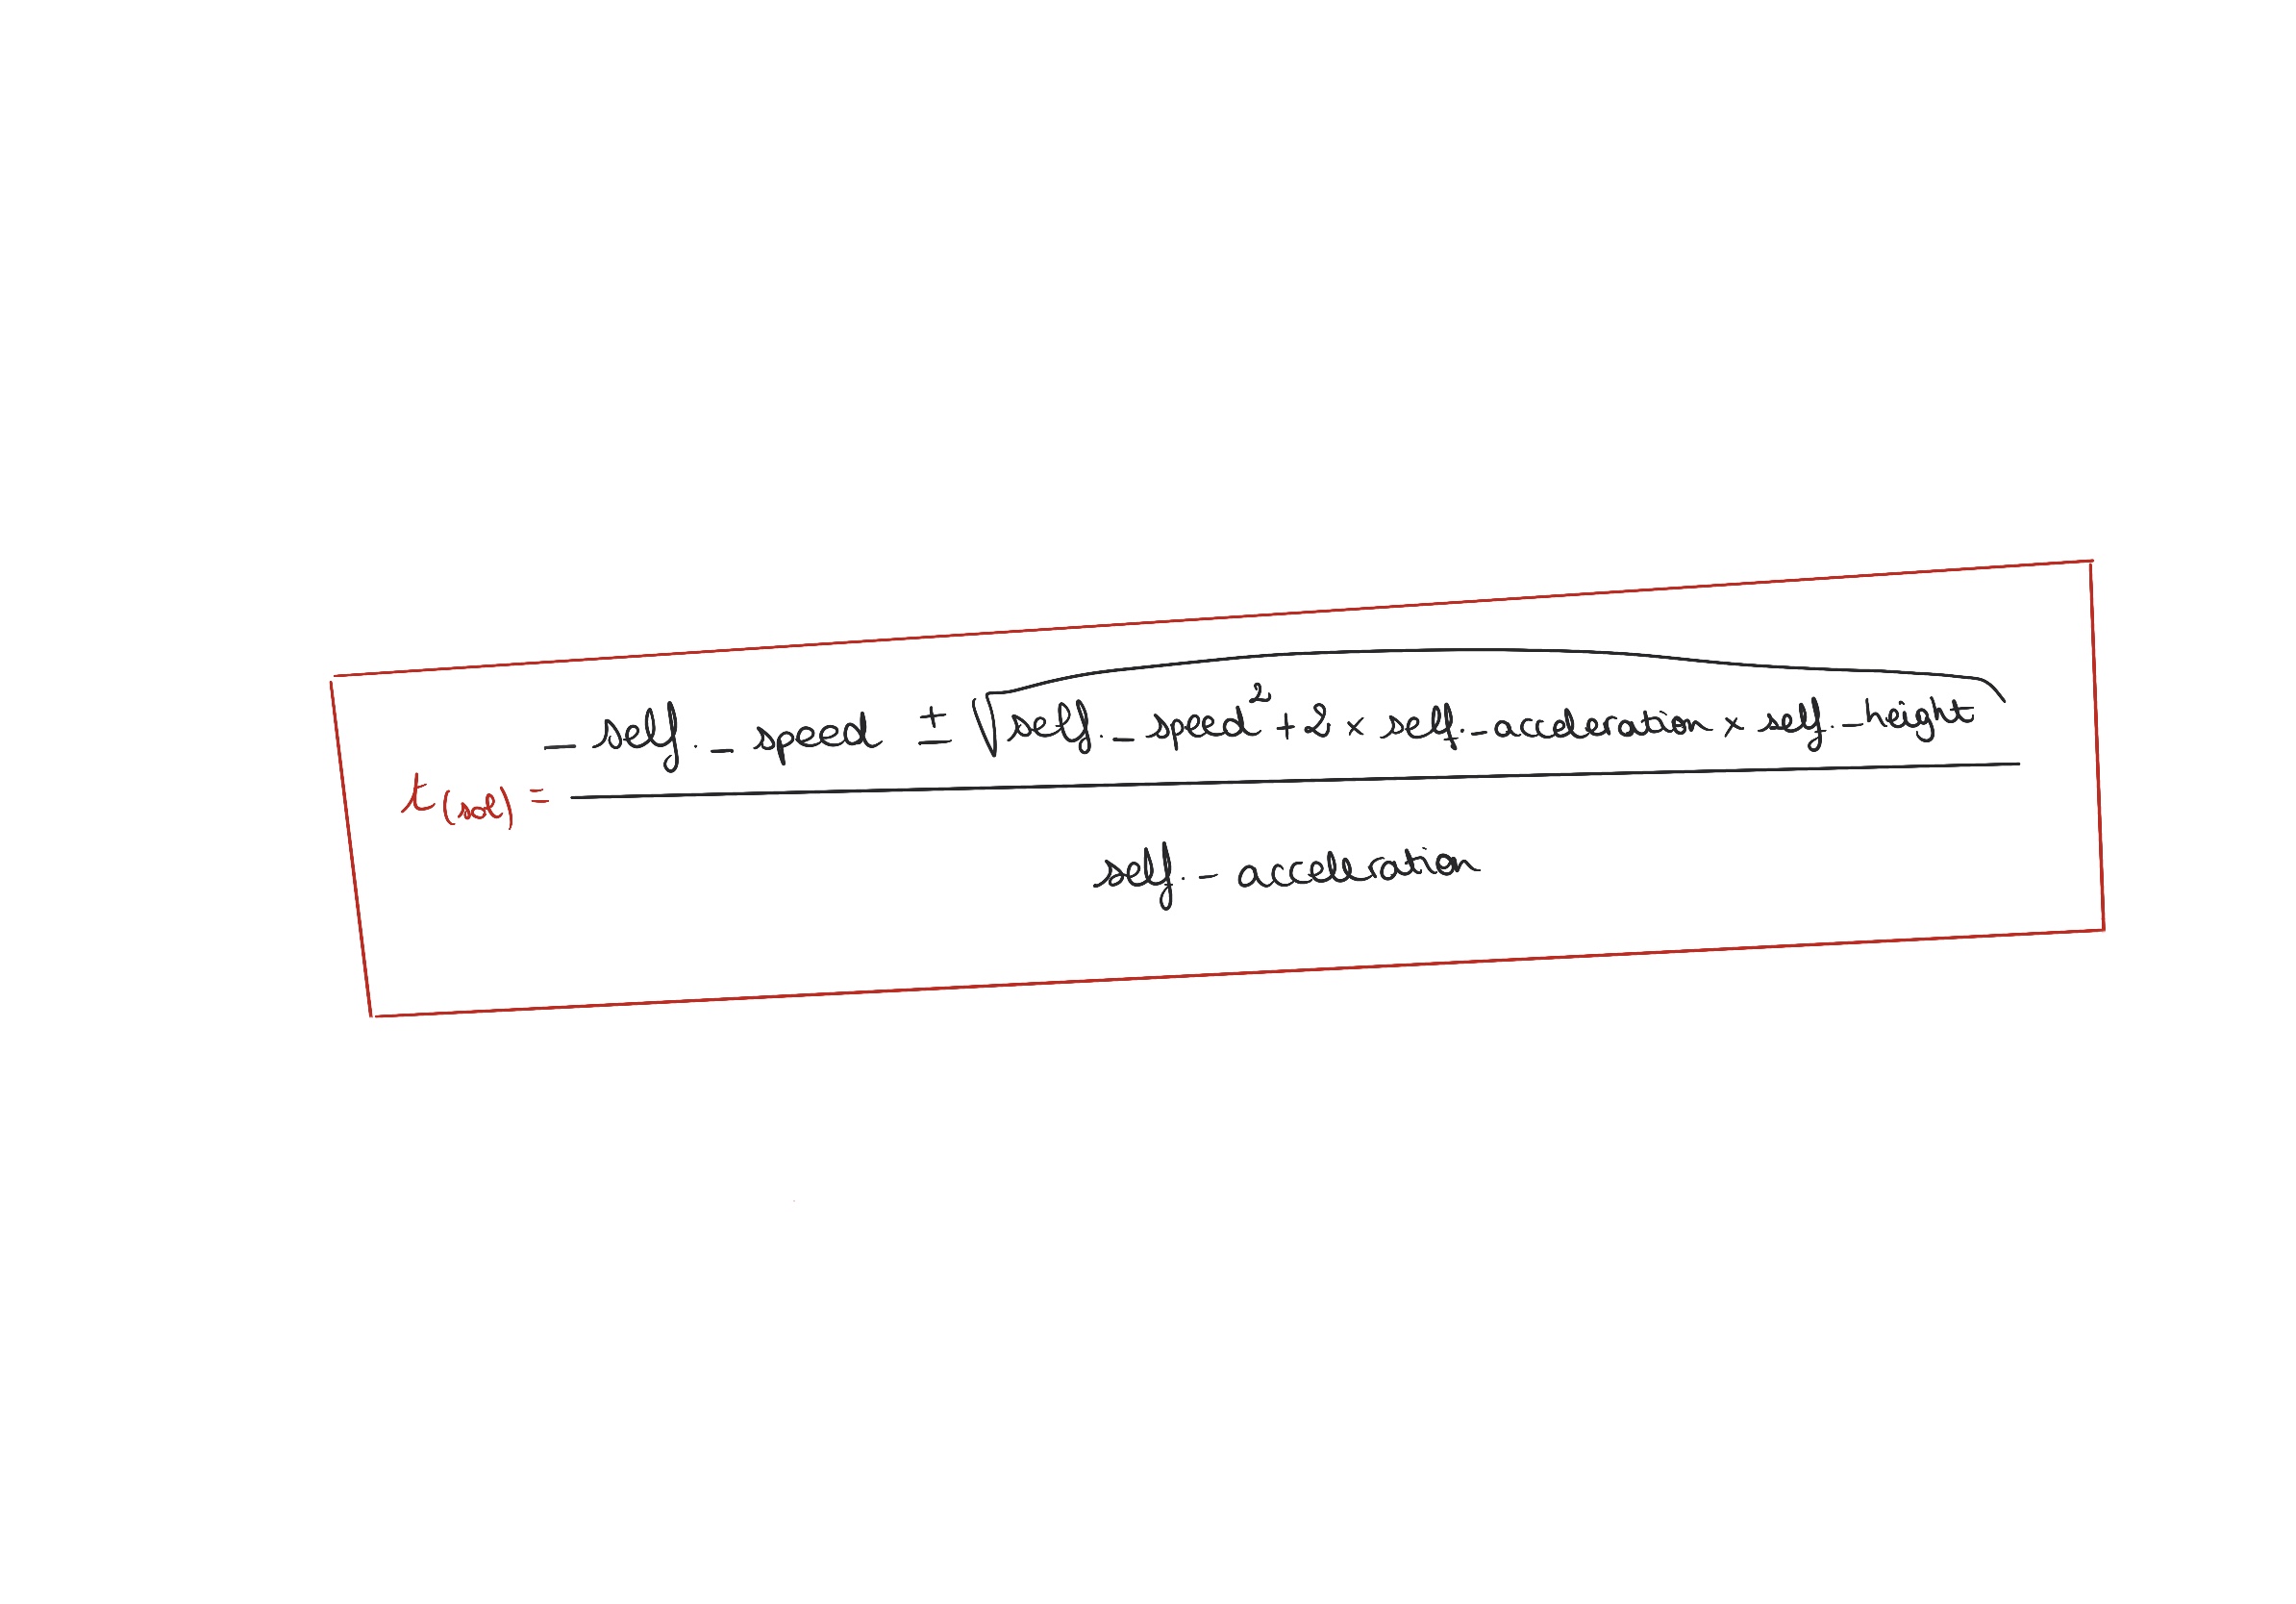 - self._speed ± √self._speed²+2 × self._acceleration × self._height
t(sol) =
self._acceleration